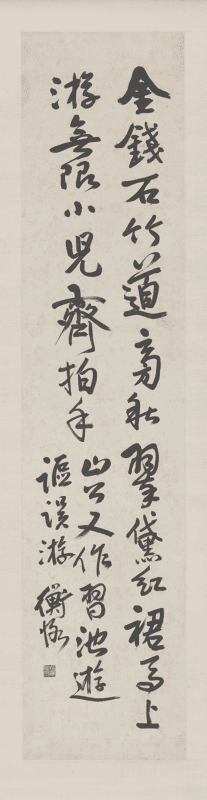 金錢石竹道旁秋翠黛紅裙馬上
游無限小兒齊拍手
山公又作習池遊
謳誤游 衡恪